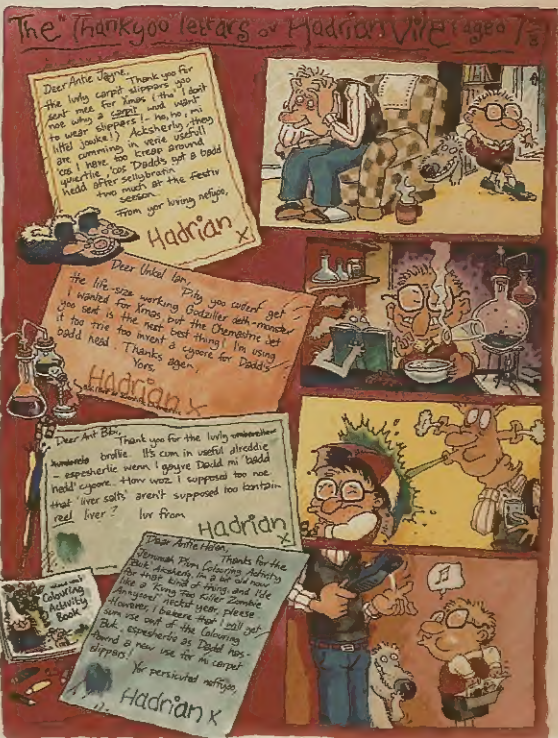 The Thankyoo lettars ov Hadrian Vile (aged 7 5/8)
Deer Antie Jayne,
Thank you for
the luvly carpit slippers yoo
sent mee for Xmas (tho' I don't
not why a carpit wud want
to wear slippers! - ho, ho, mi
littel jowke!) Acksherly, they
are cumming in verie usefull
'cos I have too kreap around
quiertlie, 'cos Dadd's got a badd
hedd after sellybratin
two much at the festiv
season.
From yor luving nefyoo,
Hadrian x
Deer Unkel Ian,
Pity you cudent get
the life-size working Godziller deth-monster
I wanted for Xmas, but the Chemastrie Set
yoo sent is the next best thing! I'm using
it too trie too invent a cyoore for Dadd's
badd head. Thanks agen,
Yors,
Hadrian x
Deer Ant Bibi,
Thank yoo for the luvly
brollie. It's cum in useful alreddie
- espesherlie wenn I gayve Dadd mi 'badd
hedd' cyoore. How woz I supposed too noe
that 'liver salts' aren't supposed too kontain
reel liver? luv from
Hadrian x
Dear Antie Helen,
Thanks for the
Jemimah Plum Colouring Activity
Buk. Aksherly, I'm a bit old now
for that kind of thing, and I'de
like a Kung Foo Killer Zombie
Annyooal neckst year, pleese.
However, I beleeve that I will get
sum use owt of the Colouring
Buk, espesherlie as Dadd has
fownd a new use for mi carpet
slippers!
Yor persicuted nefyoo,
Hadrian x
Colouring
Activity
Book